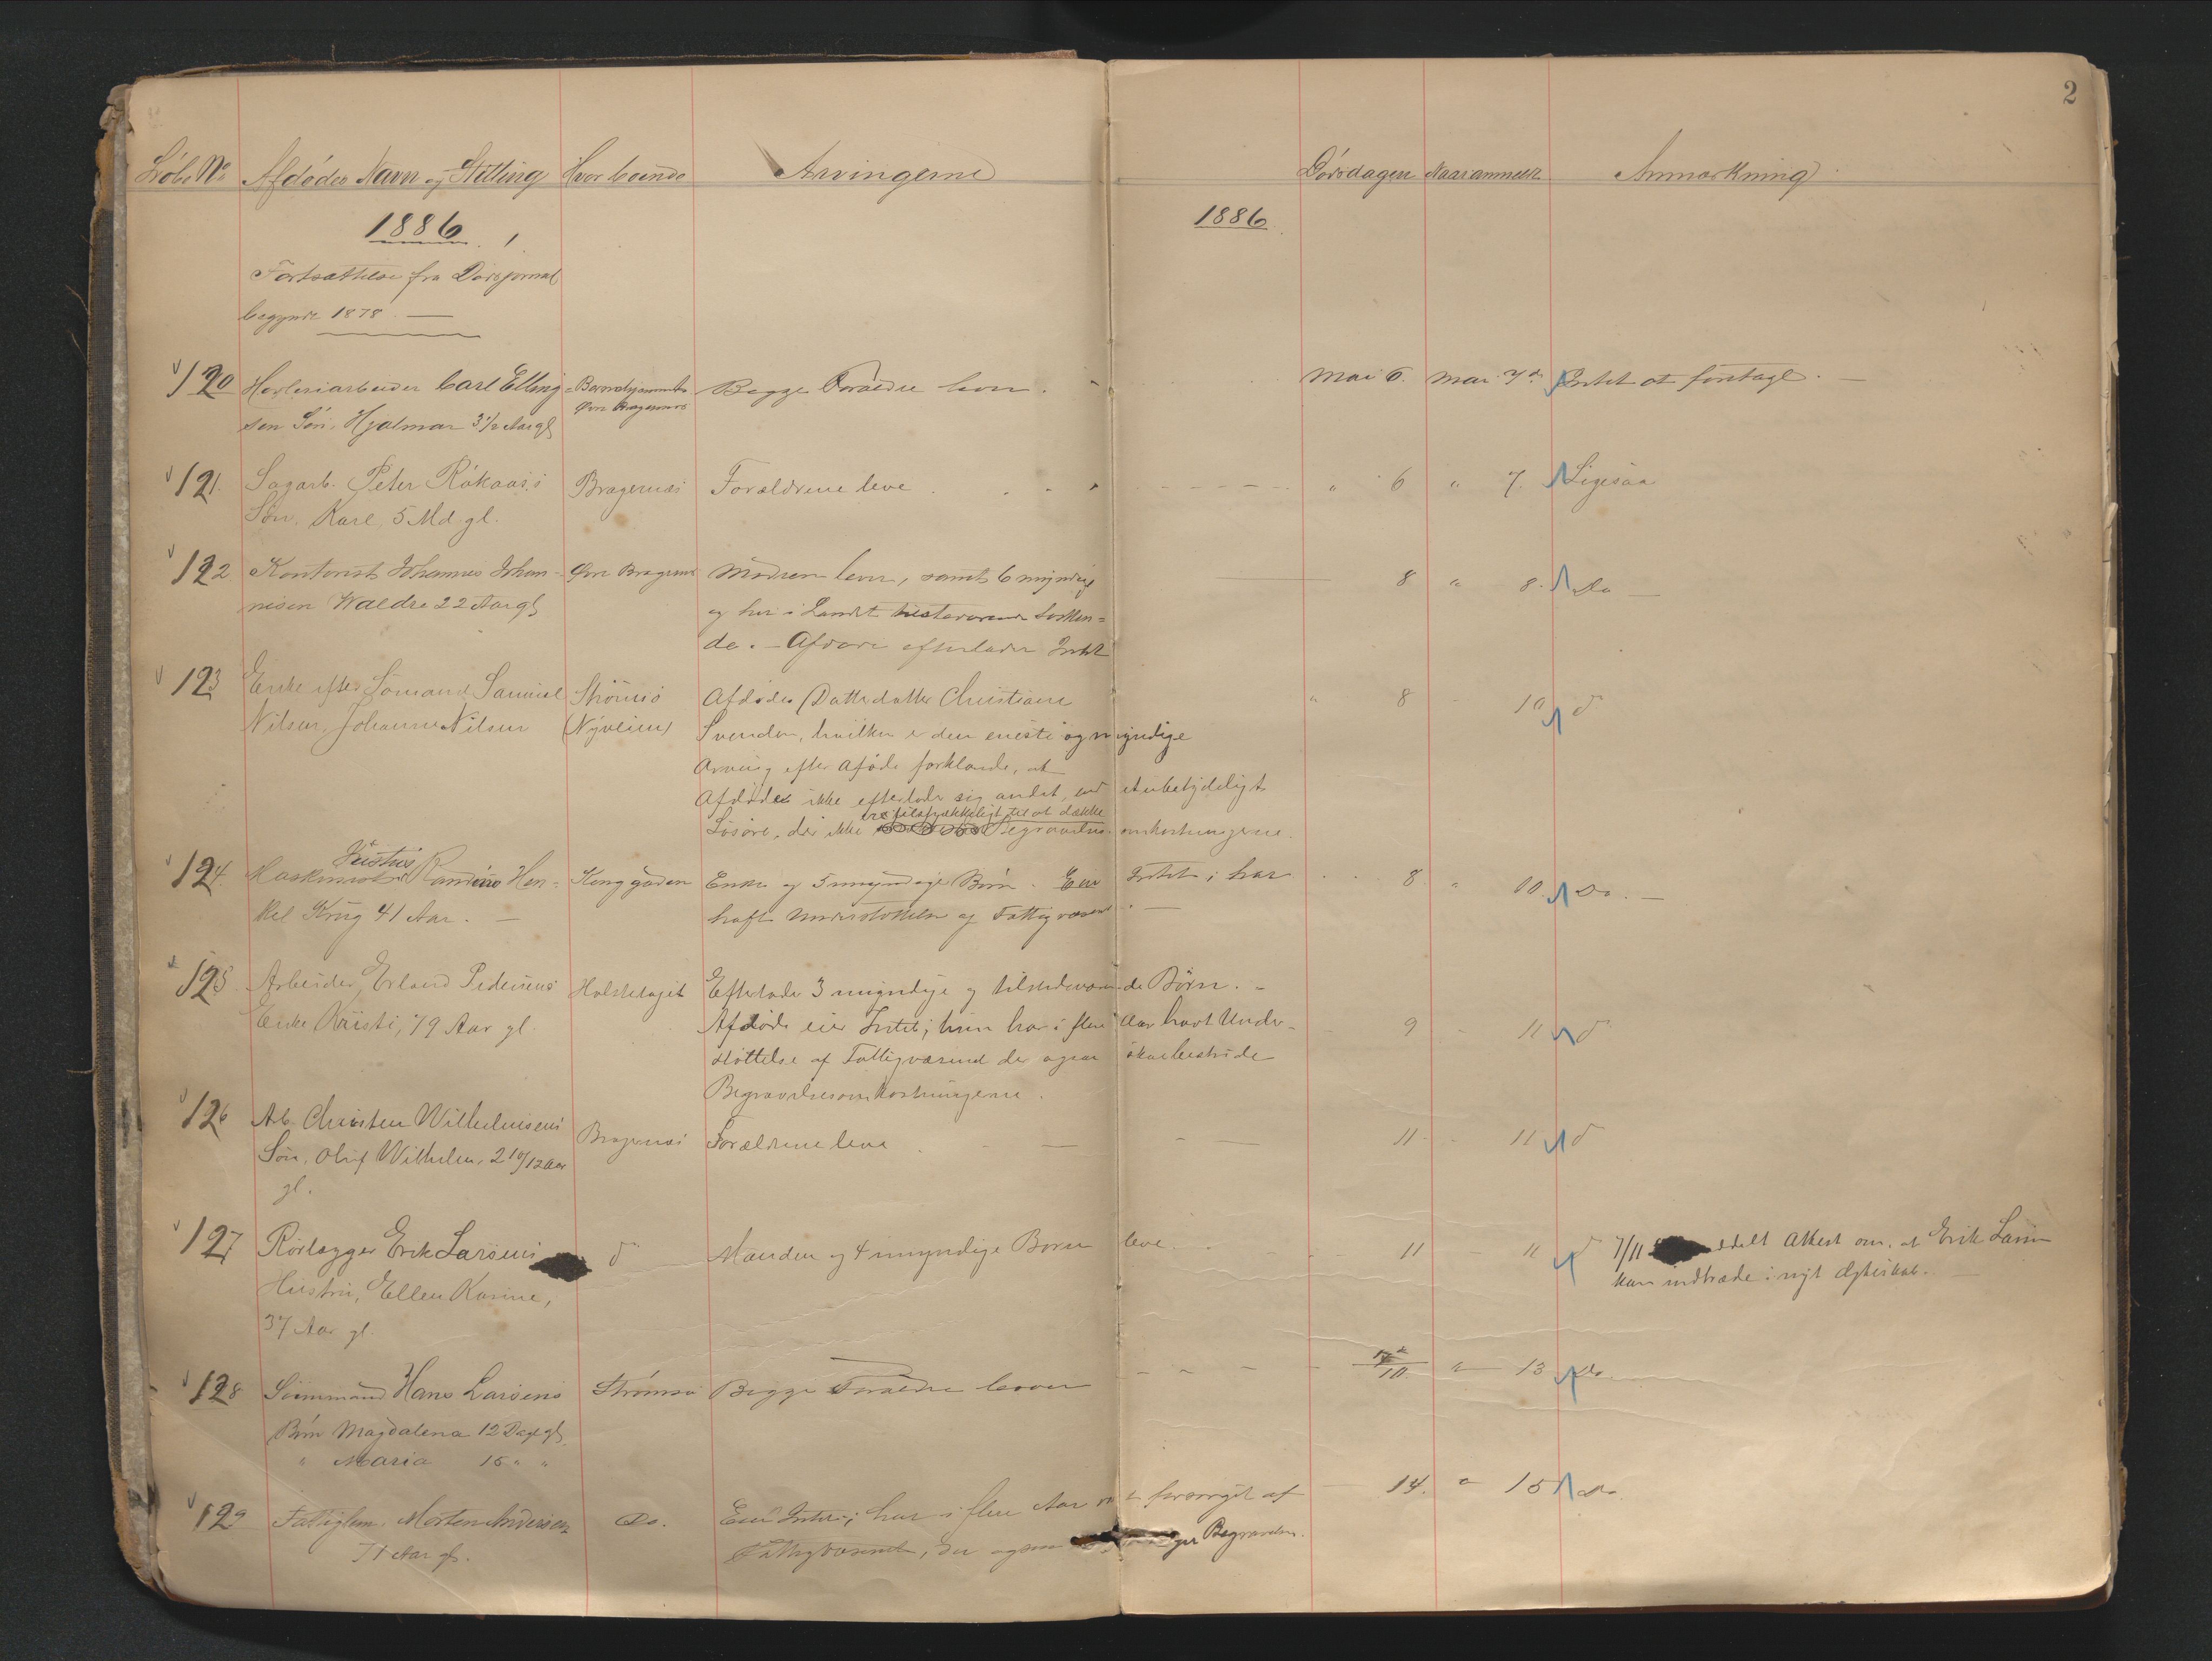 2
Løbe No Afdødes Navn og Stilling Hvor boende Arvingerne Dødsdagen Naar anmeldt Anmærkning
1886. 1886.
Fortsættelse fra Dødsjornal
begyndt 1878
120 Høvleriarbeider Carl Elling- Børnehjemmet Begge Forældre lever. Mai 6. Mai 7de Intet at foretage.
sen Søn, Hjalmar 3 1/2 Aar gl Øvre Bragernes
121. Sagarb. Peter Rökaas's Bragernæs Forældrene leve " 6 " 7. Ligesaa
Søn, Karl, 5 Md. gl.
122 Kontorist Johannes Johan- Øvre Bragernes Modren lever, samt 6 myndige 8 " 8. Do
nesen Waldre 22 Aar gl og her i Landet tilstedeværende Sødsken-
de. - Afdøde efterlader Intet
123 Enke efter Sømand Samuel Strømsø Afdødes Datterdatter Christiane " 8 - 10 do
Nilsen, Johanne Nilsen (Nyveien) Svendsen, hvilken er den eneste og myndige
Arving efter Afdøde forklarede, at
Afdøde ikke efterlod sig andet, end et ubetydeligt
er tilstrækkeligt til at dække
Løsøre, der ikke Begravelsesomkostningerne.
124 Maskinist Hen- Konggaden Enke og 5 umyndige Børn. Eier Intet; har 8. " 10. Do.
kel Krug 41 Aar. havt Understøttelse af Fattigvæsenet.
125 Arbeider Erland Pedersens Holstelaget Efterlader 3 myndige og tilstedeværende Børn. -
Enke Kristi, 79 Aar gl. Afdøde eier Intet; hun har i flere Aar havt Under- 9 - 11 do
støttelse af Fattigvæsenet der ogsaa skal bestride
Begravelsesomkostningerne.
126 Arb. Christen Wilhelmsens Bragernæs Forældrene leve 11. - 11 do
Søn, Oluf Wilhelm, 2 10/12 Aar
gl.
127 Rørlægger Erik Larsens do Manden og 4 umyndige Børn leve. 11 - 11 do 7/11 Attest om, at Erik Larsen
Hustru, Ellen Karine, kan indtræde i nyt Ægteskab.
37 Aar gl.
128 Sømmand Hans Larsens Strømsø Begge Forældre lever 10 " 13 Do.
Børn Magdalena 12 Dage gl.
" Maria 15 " "
129 Fattiglem Morten Andersen Do. Eier Intet; har i flere Aar forsørget af 14. " 15 Do.
71 Aar gl. Fattigvæsenet, der ogsaa Begravelsen.